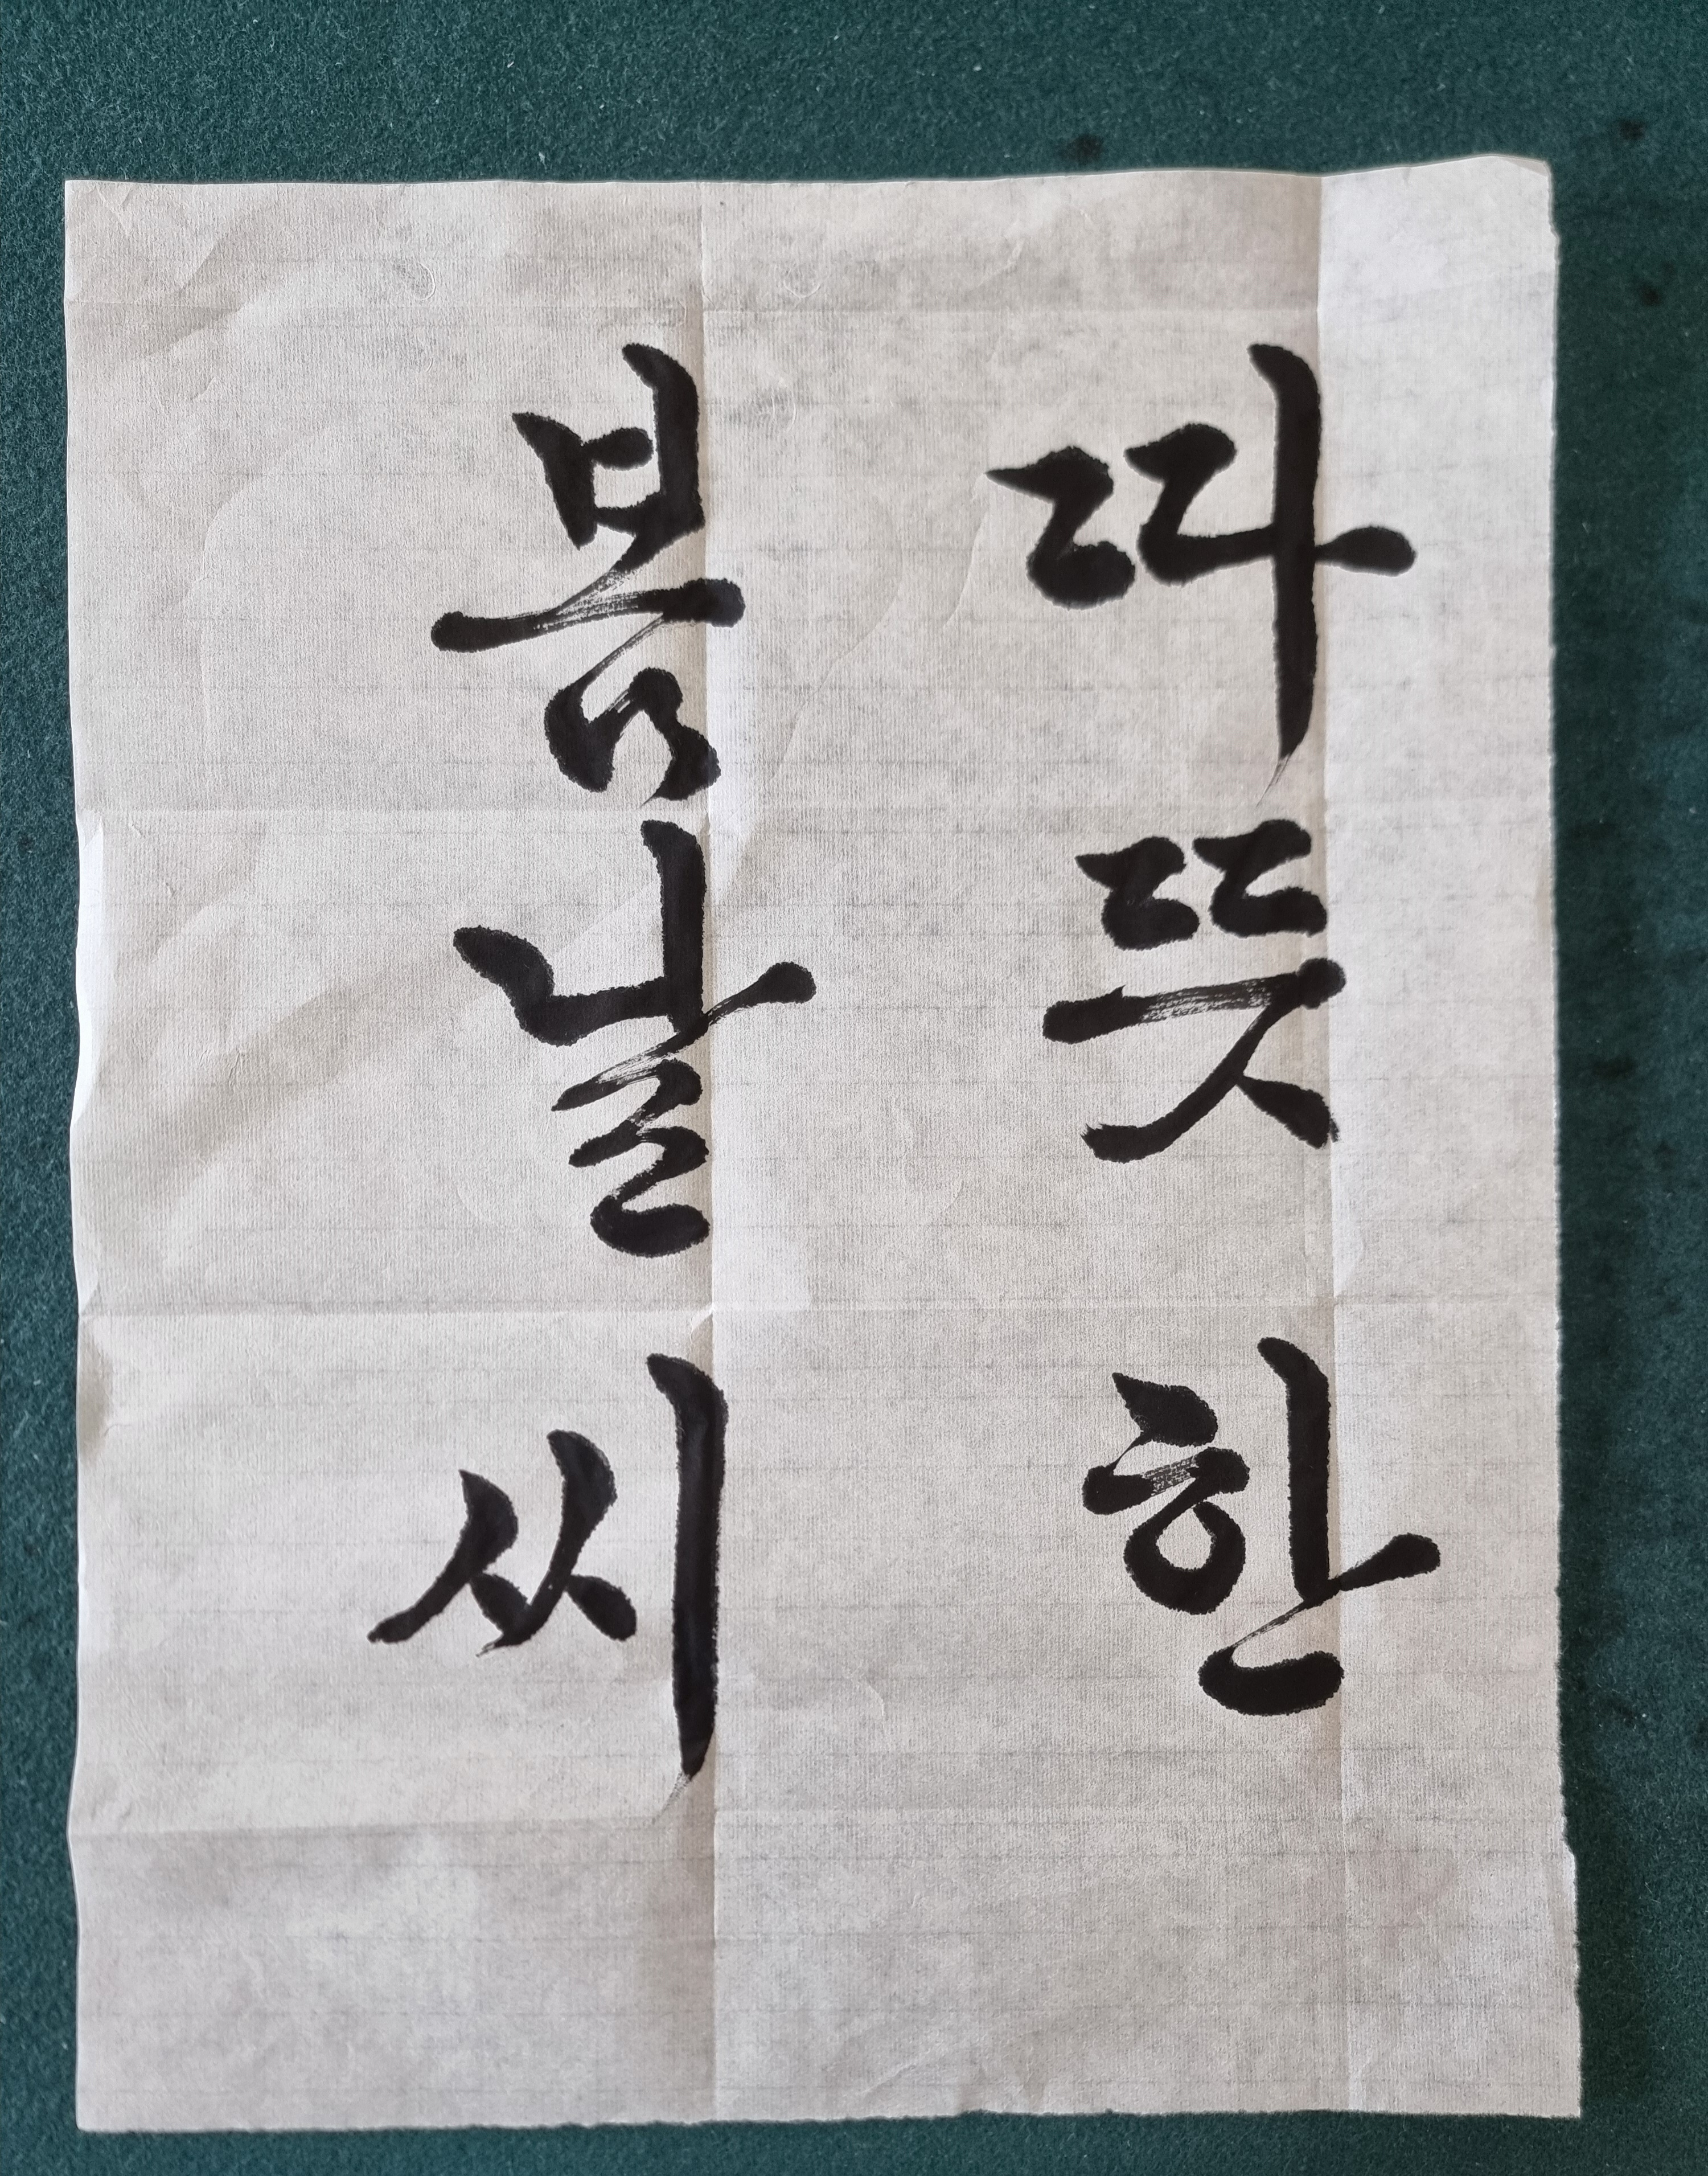 따뜻한
봄날씨